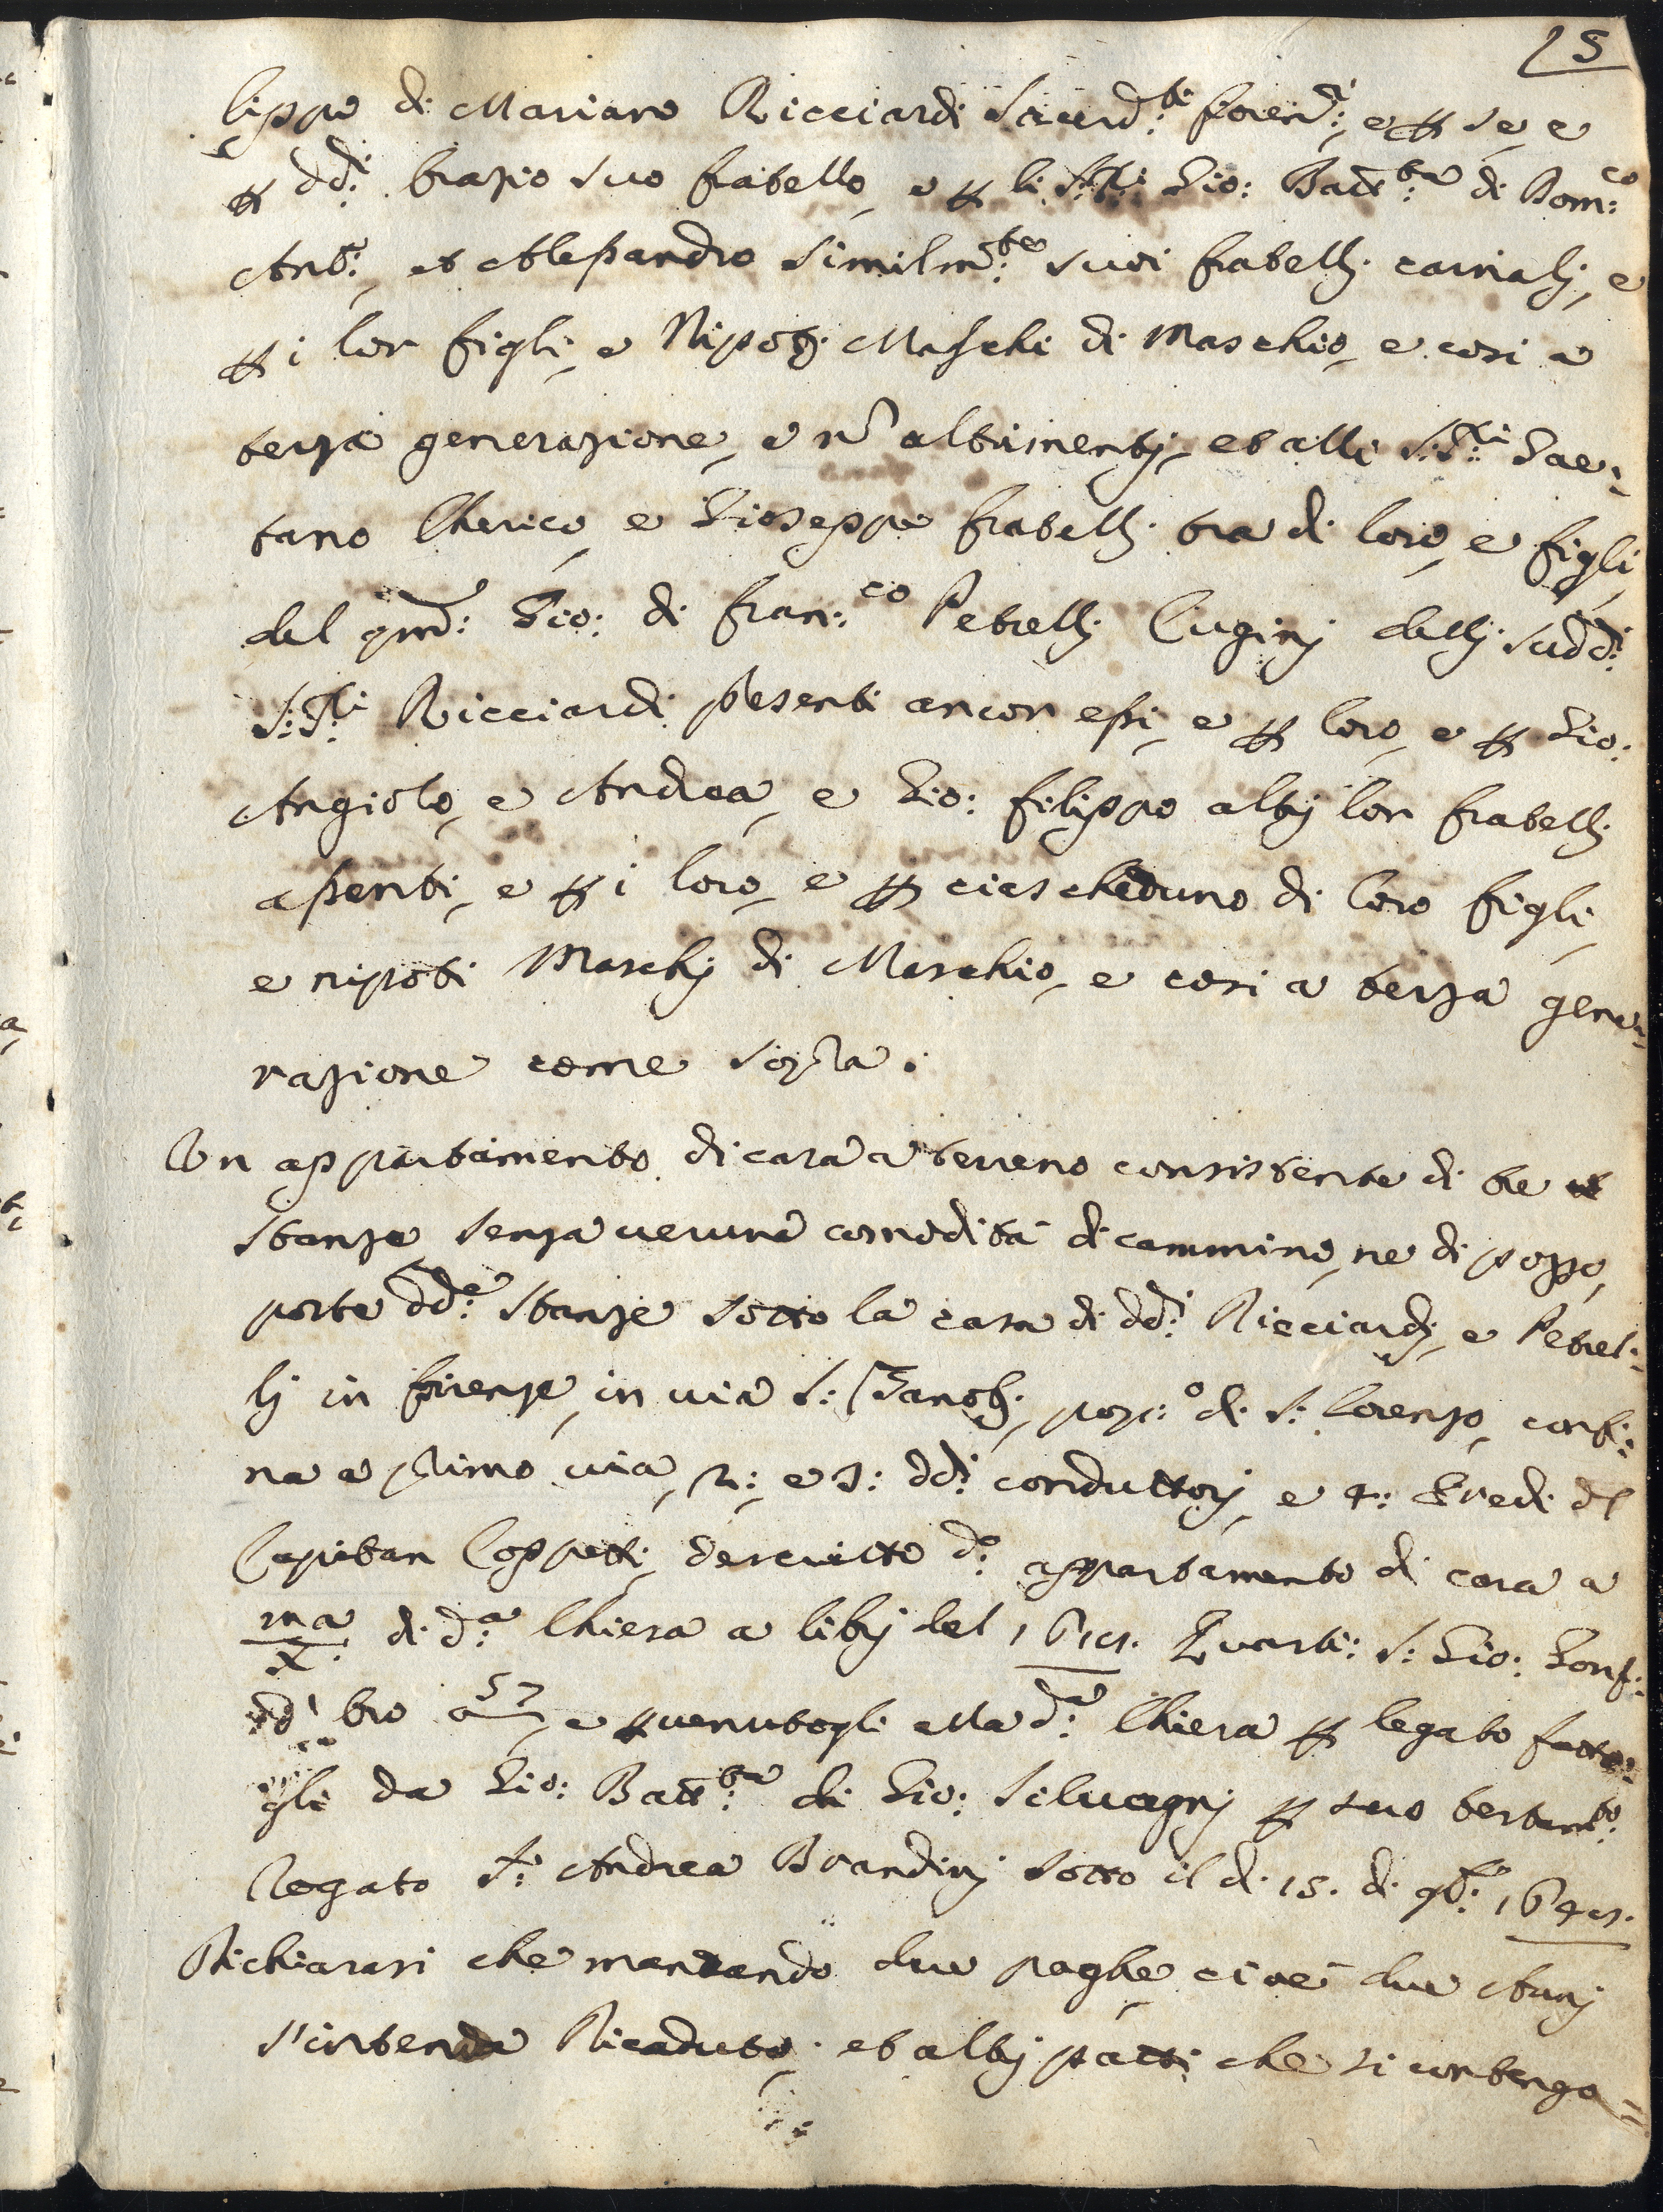 15
lippo di Mariano Ricciardi Sacerd:ti fioren:ni, e p se, e
p dd:i Orazio suo fratello, e p li SS:ri Gio: Batt:ta di Dom:co
Ant:o, et Alessandro similm:te suoi fratelli carnalj, e
p i lor figli, e Nipotj Maschi di Maschio, e così a
terza generazione, e nõ altrimentj, et alli SS:ri Gae:
tano Cherico, e Gioseppe fratellj tra di loro, e figli
del qm: Gio: di Fran:co Petrellj Cuginj dellj sudd:i
SS:ri Ricciardi presenti ancor essi, e p loro, e p Gio:
Angiolo, e Andrea, e Gio: Filippo altrj lor fratellj
assenti, e p i loro, e p ciascheduno di loro figli,
e nipoti Maschj di Maschio, e così a terza gene:
razione come sopra.
Un appartamento di casa a terreno consistente di tre
stanze senza veruna comodità di cammino, ne di pozzo,
poste dd:e stanze sotto la casa di dd:i Ricciardj, e Petrel:
lj in Firenze, in via S: Zanobj, pop:o di S: Lorenzo, confi:
na a primo via, 2: e 3: dd:i conduttorj, e 4: Eredi del
Capitan Coppetti, descritto d:o appartamento di casa a
ma di d:a Chiesa a librj del Quarti: S: Gio: Gonf:
bro 57, e pvenutogli alla d:a Chiesa p legato fatto:
gli da Gio: Batt:ta di Gio: Selvagnj p suo testam:to
Rogato S:r Andrea Brandinj sotto il di 15. di
Dichiarasi che mancando due paghe, cioè due Annj
s'intenda Ricaduto; et altrj patti che si contengo=